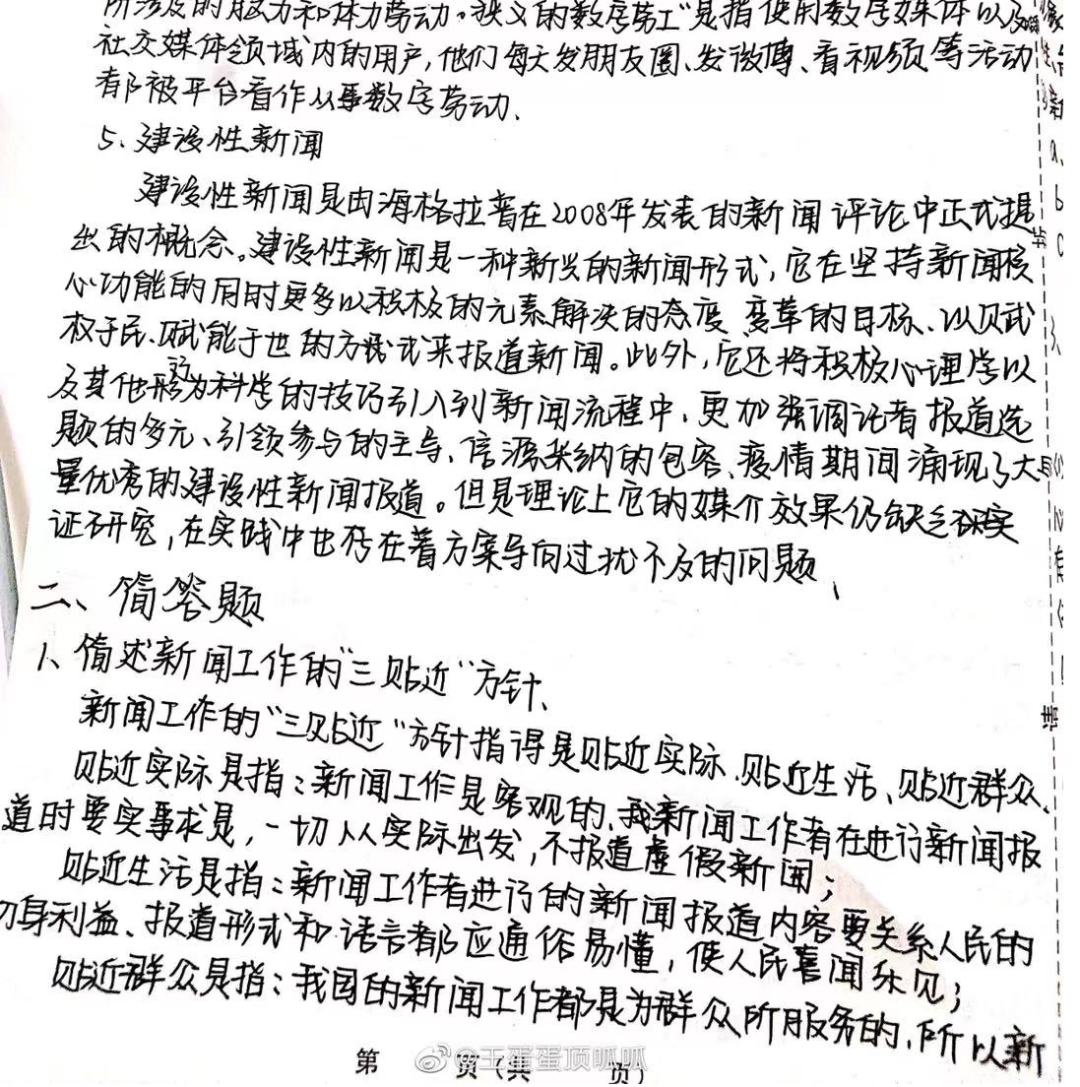 所涉及的脑力和体力劳动。狭义的“数字劳工”是指使用数字媒体以及
社交媒体领域内的用户,他们每天发朋友圈、发微博、看视频等活动
都被平台看作从事数字劳动、
5、建设性新闻
建设性新闻是由海格拉普在2008年发表的新闻评论中正式提
出的概念。建设性新闻是一种新兴的新闻形式,它在坚持新闻核
心功能的同时更多以积极的元素解决的态度、变革的目标、以赋
权于民、赋能于世的方式来报道新闻。此外,它还将积极心理学以
及其他行为科学的技巧引入到新闻流程中、更加强调记者报道选
题的多元、引领参与的主导、信源采纳的包容、疫情期间涌现了大
量优秀的建设性新闻报道。但是理论上它的媒介效果仍缺乏实
证研究,在实践中也存在着方案导向过犹不及的问题、
二、简答题
1、简述新闻工作的“三贴近”方针、
新闻工作的“三贴近”方针指得是贴近实际、贴近生活、贴近群众、
贴近实际是指:新闻工作是客观的、新闻工作者在进行新闻报
道时要实事求是,一切从实际出发,不报道虚假新闻;
贴近生活是指:新闻工作者进行的新闻报道内容要关系人民的
切身利益、报道形式和语言都应通俗易懂,使人民喜闻乐见;
贴近群众是指:我国的新闻工作都是为群众所服务的、所以新
第 页(共 页)
@王蛋蛋顶呱呱